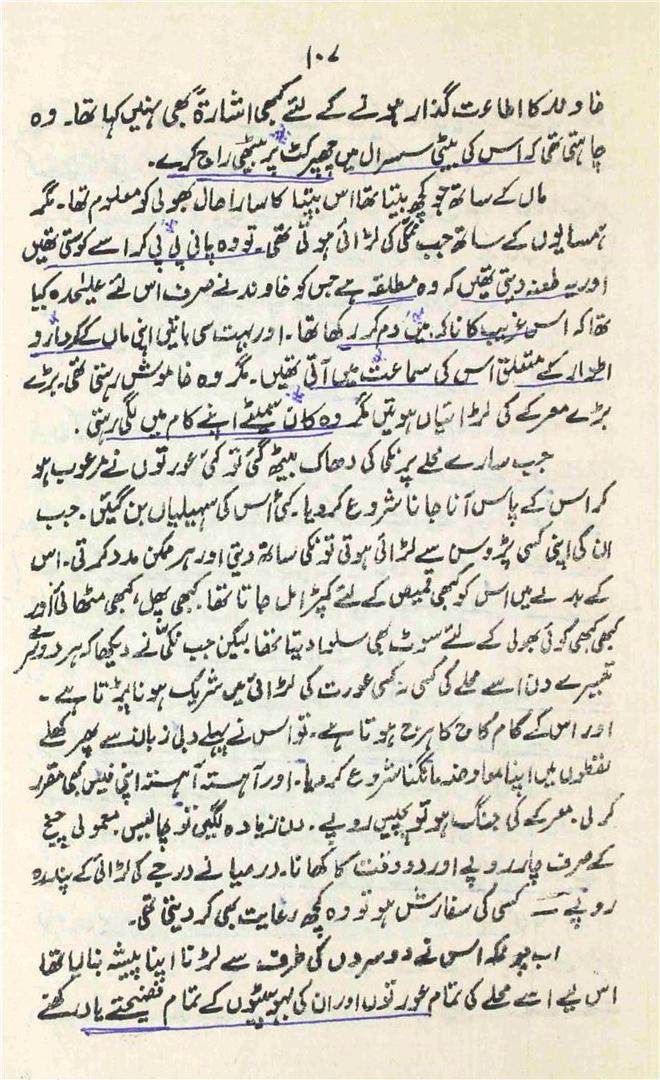 ۱۰۷
خاوند کا اطاعت گذار ہونے کے لئے کبھی اشارۃً بھی نہیں کہا تھا۔ وہ
چاہتی تھی کہ اس کی بیٹی سسرال میں چھپر کٹ پر بیٹھی راج کرے۔
ماں کے ساتھ جو کچھ بیتا تھا اس بپتا کا سارا حال بھولی کو معلوم تھا۔ مگر
ہمسایوں کے ساتھ جب نکی کی لڑائی ہوتی تھی۔ تو وہ پانی پی پی کر اسے کوستی تھیں
اور یہ طعنہ دیتی تھیں کہ وہ مطلقہ ہے جس کو خاوند نے صرف اس لئے علیٰحدہ کیا
تھا کہ اس غریب کا ناک میں دم کر رکھا تھا۔ اور بہت سی باتیں اپنی ماں کے کردار و
اطوار کے متعلق اس کی سماعت میں آتی تھیں۔ مگر وہ خاموش رہتی تھی۔ بڑے
بڑے معرکے کی لڑائیاں ہوتیں مگر وہ کان سمیٹے اپنے کام میں لگی رہتی۔
جب سارے محلے پر نکی کی دھاک بیٹھ گئی تو کئی عورتوں نے مرعوب ہو
کر اس کے پاس آنا جانا شروع کر دیا۔ کئی اس کی سہیلیاں بن گئیں۔ جب
ان کی اپنی کسی پڑوسن سے لڑائی ہوتی تو نکی ساتھ دیتی اور ہر ممکن مدد کرتی۔ اس
کے بدلے میں اس کو کبھی قمیص کے لئے کپڑا مل جاتا تھا۔ کبھی پھل، کبھی مٹھائی اور
کبھی کبھی کوئی بھولی کے لئے سوٹ بھی سلوا دیتا تھا۔ لیکن جب نکی نے دیکھا کہ ہر دوسرے
تیسرے دن اسے محلے کی کسی نہ کسی عورت کی لڑائی میں شریک ہونا پڑتا ہے۔
اور اس کے کام کاج کا ہرج ہوتا ہے۔ تو اس نے پہلے دبی زبان سے پھر کھلے
لفظوں میں اپنا معاوضہ مانگنا شروع کر دیا۔ اور آہستہ آہستہ اپنی فیس بھی مقرر
کر لی۔ معرکے کی جنگ ہو تو پچیس روپے۔ دن زیادہ لگیں تو چالیس۔ معمولی چخ
کے صرف چار روپے اور دو وقت کا کھانا۔ درمیانے درجے کی لڑائی کے پندرہ
روپے — کسی کی سفارش ہو تو وہ کچھ رعایت بھی کر دیتی تھی۔
اب چونکہ اس نے دوسروں کی طرف سے لڑنا اپنا پیشہ بنا لیا تھا
اس لیے اسے محلے کی تمام عورتوں اور ان کی بہو بیٹیوں کے تمام فضیحتے یاد رکھنے